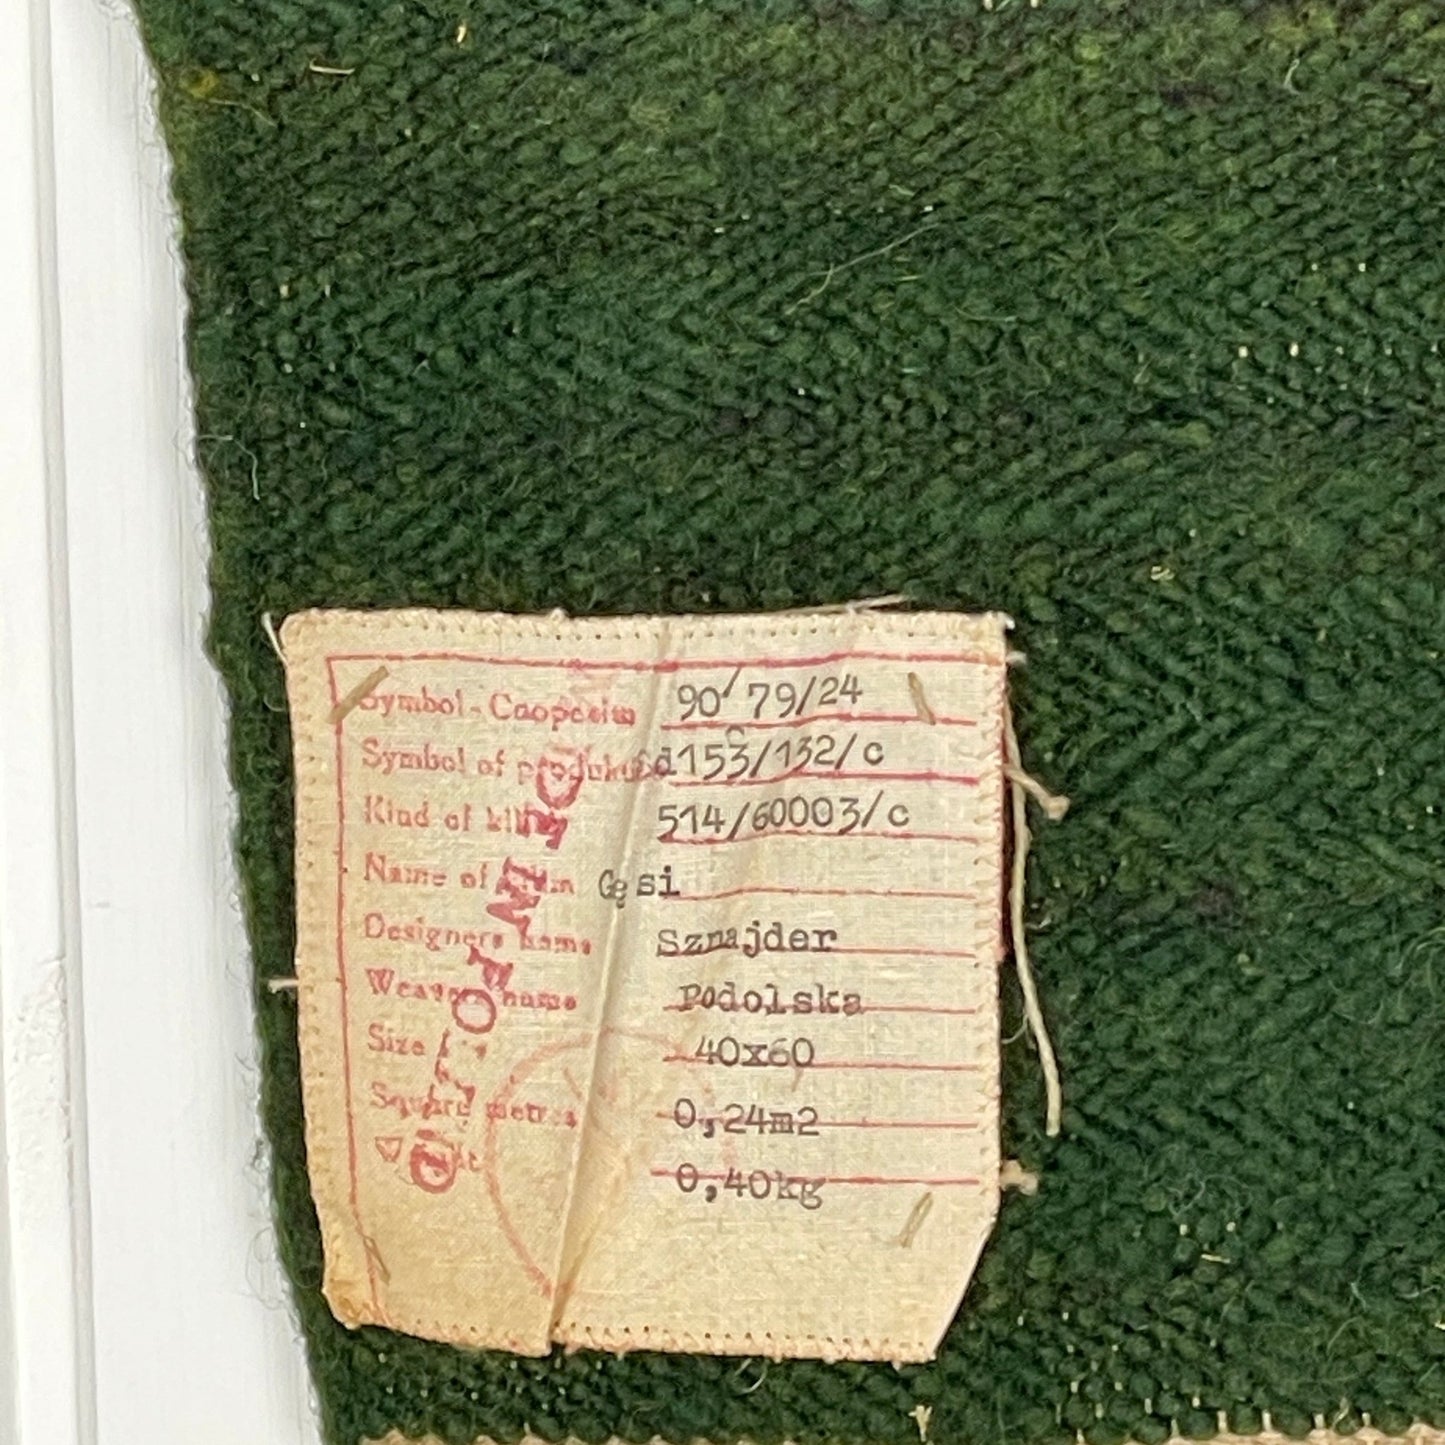 Symbol-Cooperim 90/79/24
Symbol of produkt d153/132/c
Kind of kilim 514/60003/c
Name of kilim Gęsi
Designers name Sznajder
Weavers name Podolska
Size 40x60
Square metres 0,24m2
0,40kg